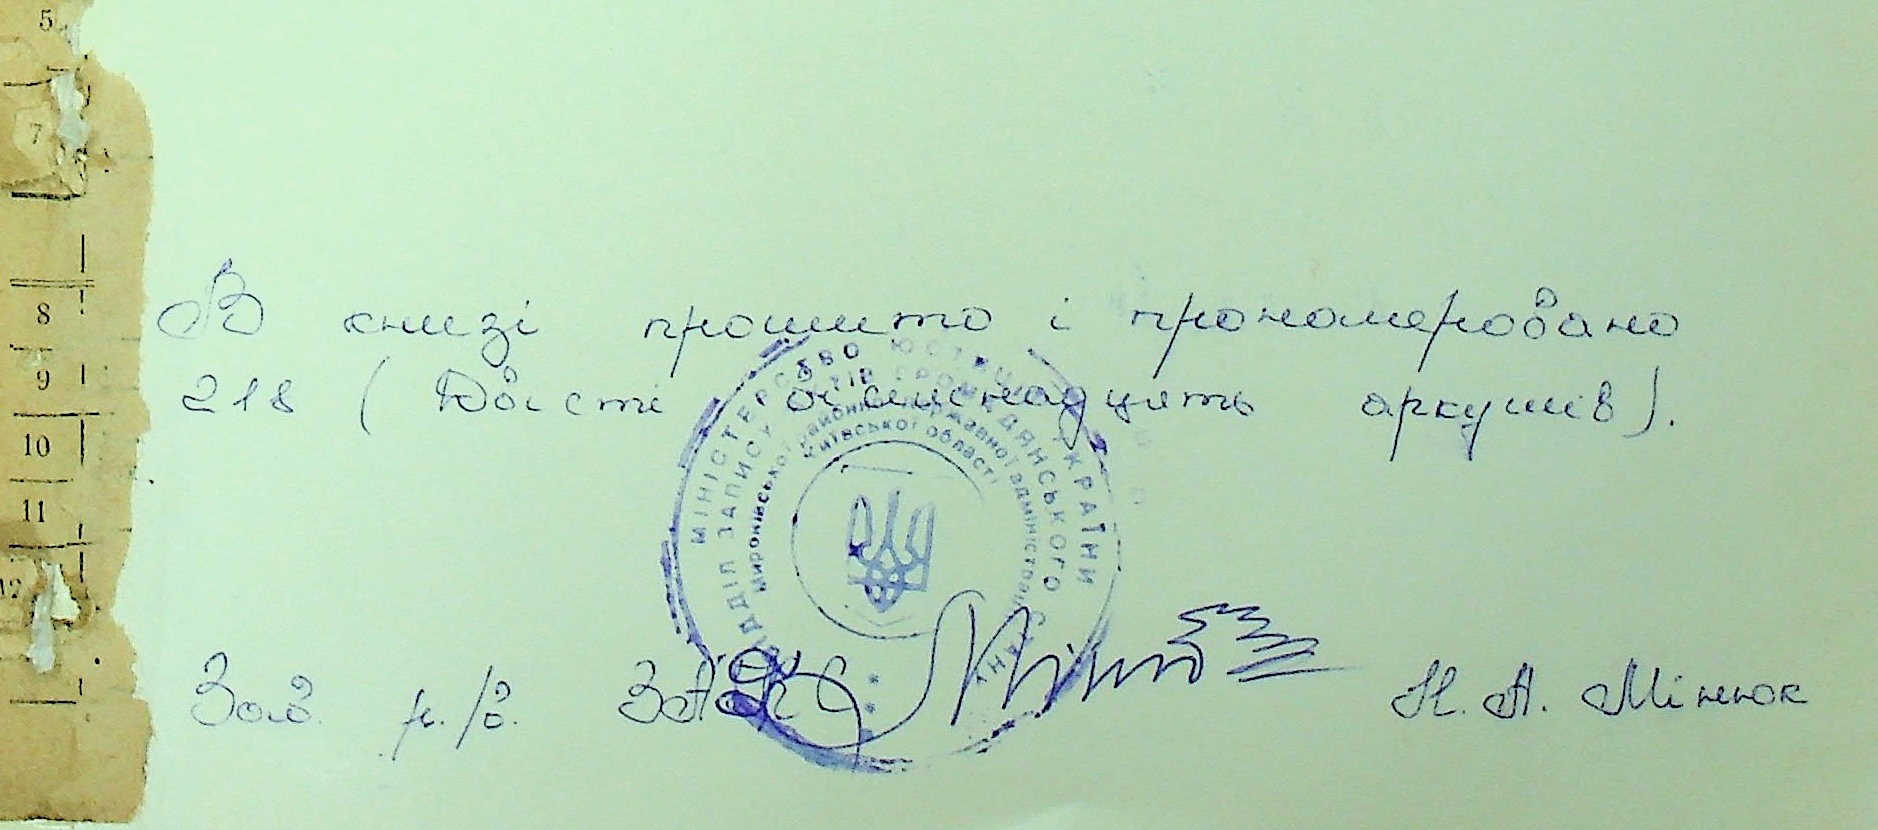 5
7
8
9
10
11
12
В книзі прошито і прономеровано
218 (Двісті вісімнадцять аркушів).
МІНІСТЕРСТВО ЮСТИЦІЇ УКРАЇНИ
ВІДДІЛ ЗАПИСУ АКТІВ ГРОМАДЯНСЬКОГО СТАНУ
Миронівської районної державної адміністрації
Київської області
Зав. р./в. ЗАГС Н. А. Мінюк